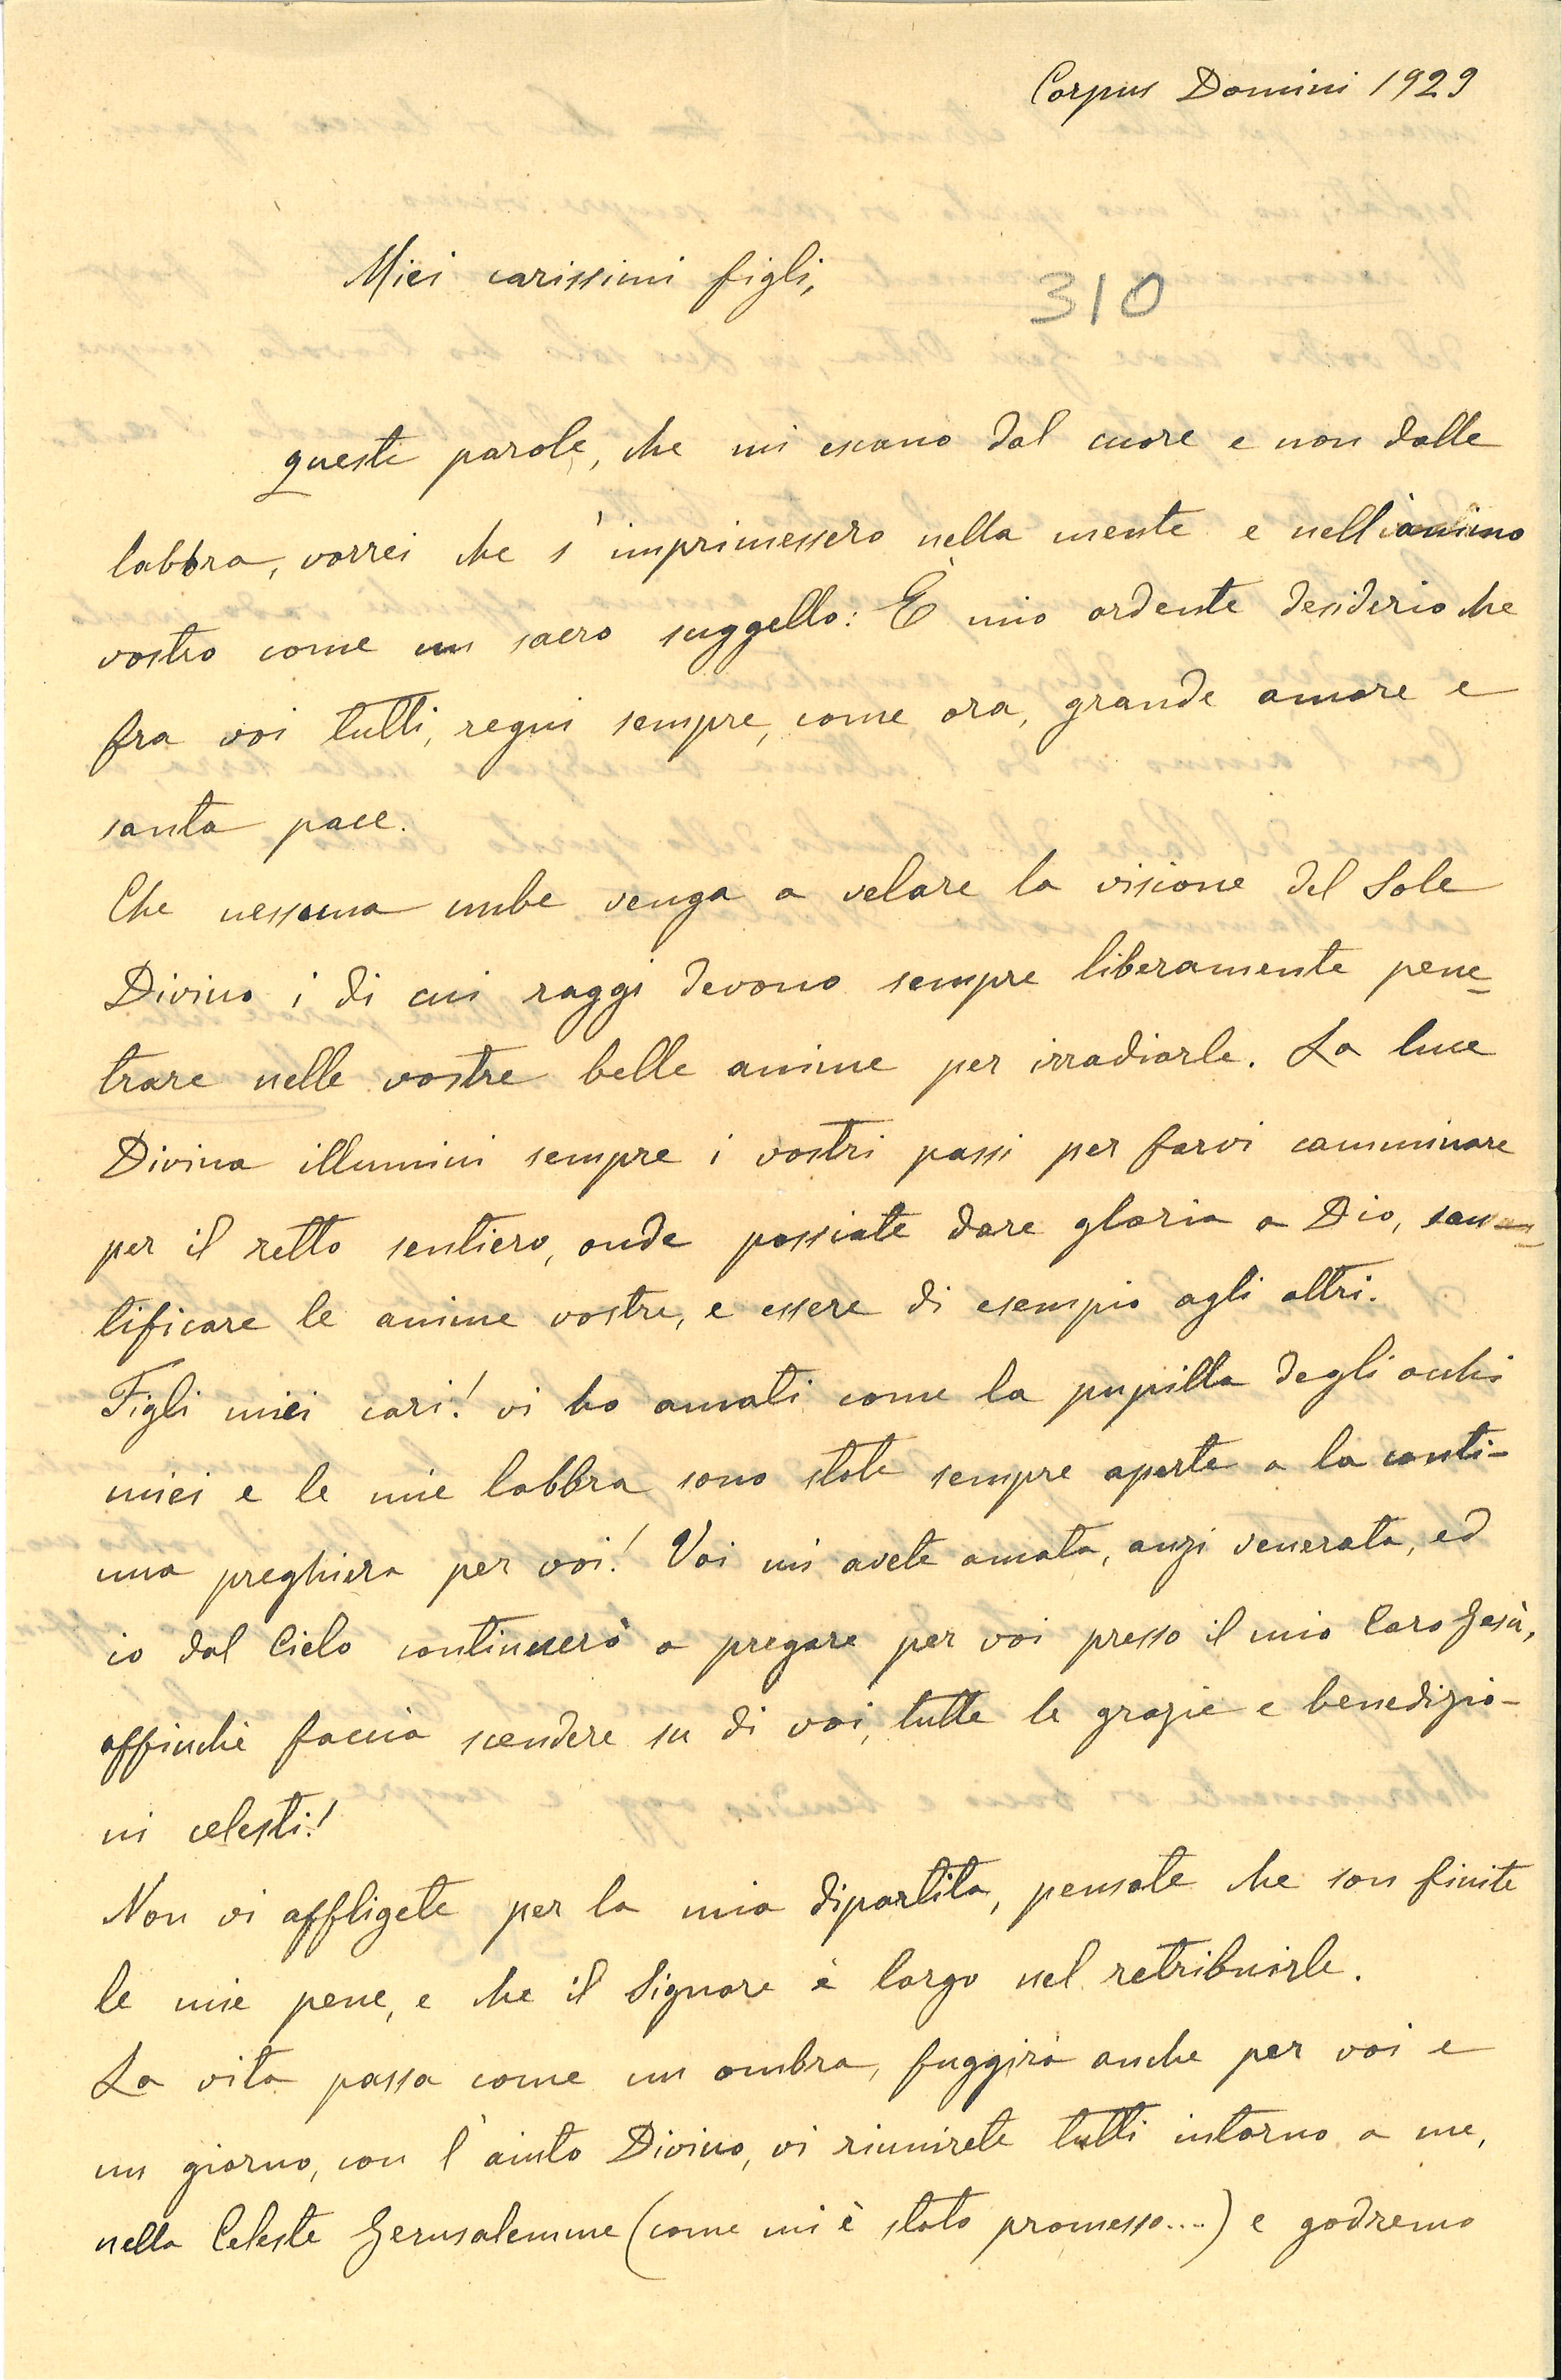 Corpus Domini 1929
Miei carissimi figli,
310
queste parole, che mi escano dal cuore e non dalle
labbra, vorrei che s'imprimessero nella mente e nell'animo
vostro come un sacro suggello: È mio ardente desiderio che
fra voi tutti, regni sempre, come ora, grande amore e
santa pace.
Che nessuna nube venga a velare la visione del Sole
Divino i di cui raggi devono sempre liberamente pene-
trare nelle vostre belle anime per irradiarle. La luce
Divina illumini sempre i vostri passi per farvi camminare
per il retto sentiero, onde possiate dare gloria a Dio, san-
tificare le anime vostre, e essere di esempio agli altri.
Figli miei cari! vi ho amati come la pupilla degli occhi
miei e le mie labbra sono state sempre aperte a la conti-
nua preghiera per voi! Voi mi avete amata, anzi venerata, ed
io dal Cielo continuerò a pregare per voi presso il mio Caro Gesù,
affinchè faccia scendere su di voi, tutte le grazie e benedizio-
ni celesti!
Non vi affligete per la mia dipartita, pensate che son finite
le mie pene, e che il Signore è largo nel retribuirle.
La vita passa come un ombra, fuggirà anche per voi e
un giorno, con l'aiuto Divino, vi riunirete tutti intorno a me,
nella Celeste Gerusalemme (come mi è stato promesso....) e godremo